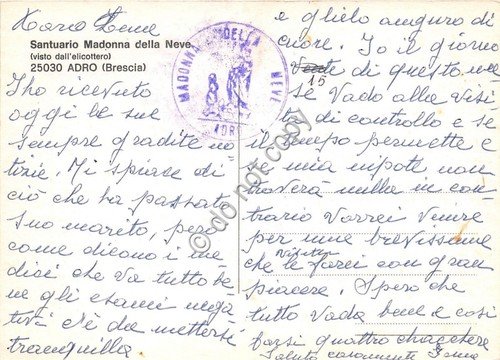 Cara Irene
Santuario Madonna della Neve
(visto dall'elicottero)
25030 ADRO (Brescia)
MADONNA DELLA NEVE
ADRO
I ho ricevuto
oggi le sue
sempre gradite no-
tizie. Mi spiace di
ciò che ha passato
suo marito, però
come dicono i me
dici che va tutto be
ne gli esami nega
tivi c'è da mettersi
tranquilla
e glielo auguro di
cuore. Io il giorno
15 di questo me
se vado alla visi
ta di controllo e se
il tempo permette e
i mia nipote non
troverà nulla in con
trario vorrei venire
per una brevissima
visita
che le farei con gran
piacere. Spero che
tutto vada bene e così
farsi quattro chiacchere
Saluto caramente
© do not copy